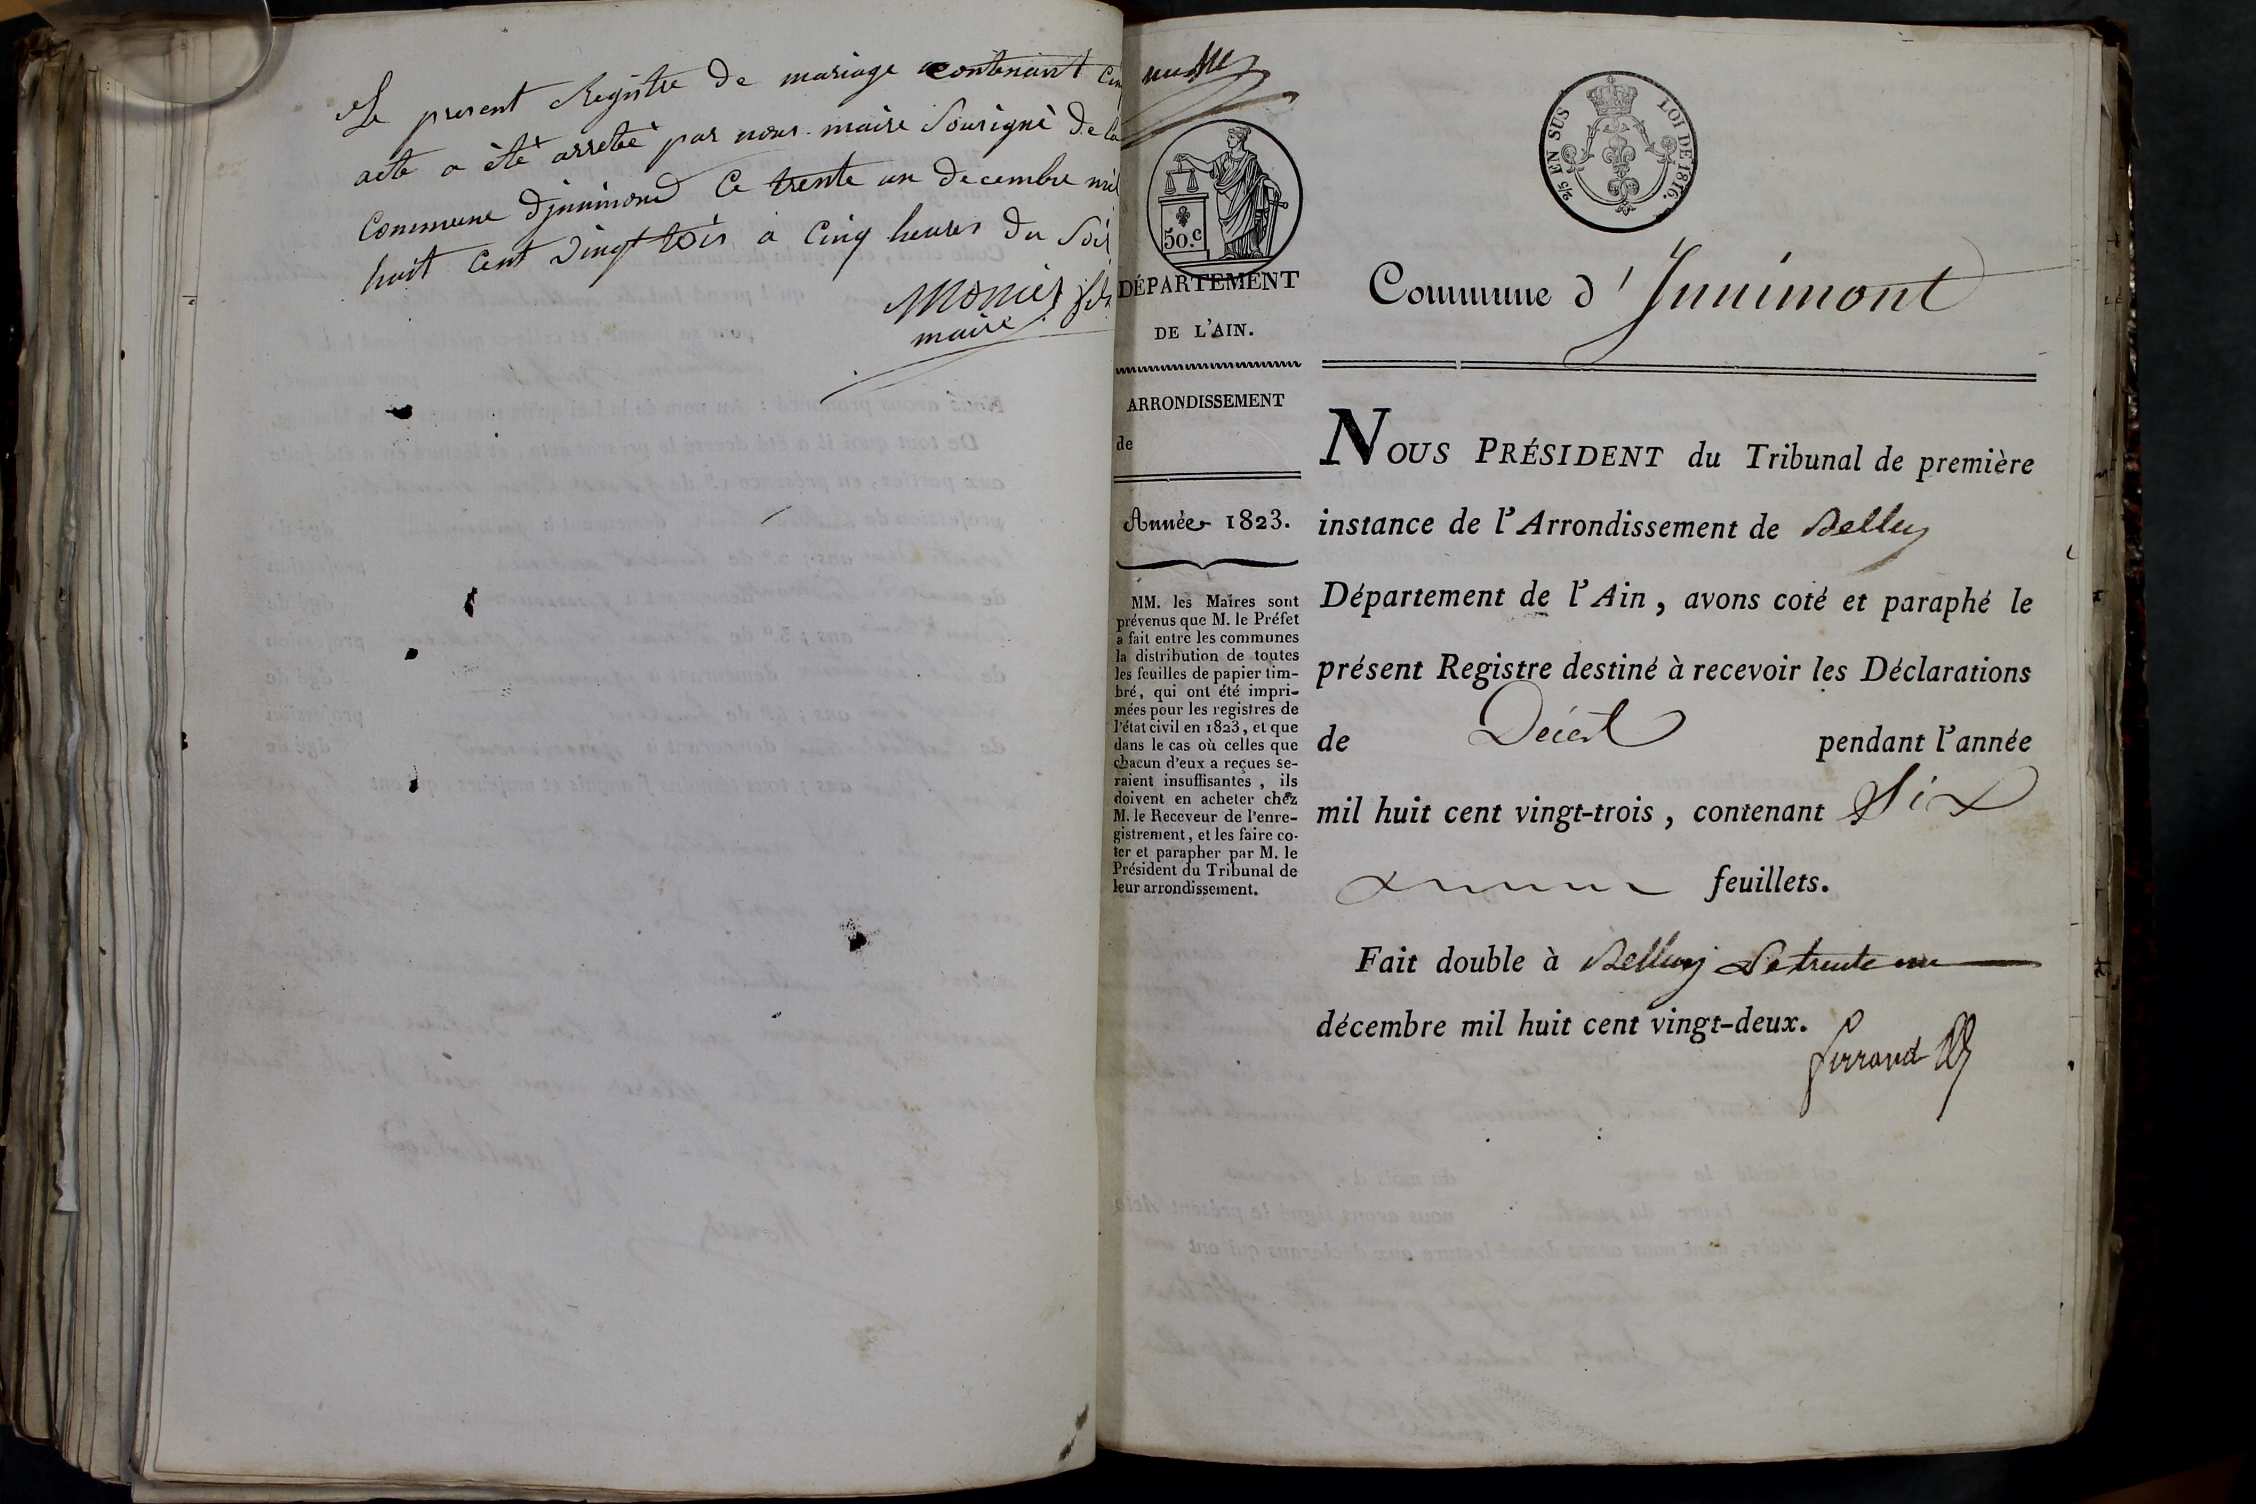 Le present Registre de mariage contenant cinq
acte a été arretée par nous maire Sousigné de la
Commune d'jnnimond Ce trente un decembre mil
huit Cent vingt trois a Cinq heures du Soir
Monier fils
maire
50.c
2/5 EN SUS
LOI DE 1816.
DÉPARTEMENT
DE L'AIN.
ARRONDISSEMENT
de
Année 1823.
MM. les Maires sont
prévenus que M. le Préfet
a fait entre les communes
la distribution de toutes
les feuilles de papier tim-
bré, qui ont été impri-
mées pour les registres de
l'état civil en 1823, et que
dans le cas où celles que
chacun d'eux a reçues se-
raient insuffisantes, ils
doivent en acheter chez
M. le Receveur de l'enre-
gistrement, et les faire co-
ter et parapher par M. le
Président du Tribunal de
leur arrondissement.
Commune d'Innimont
NOUS PRÉSIDENT du Tribunal de première
instance de l'Arrondissement de Belley
Département de l'Ain, avons coté et paraphé le
présent Registre destiné à recevoir les Déclarations
de Décès pendant l'année
mil huit cent vingt-trois, contenant Six
feuillets.
Fait double à Belley Le trente un
décembre mil huit cent vingt-deux.